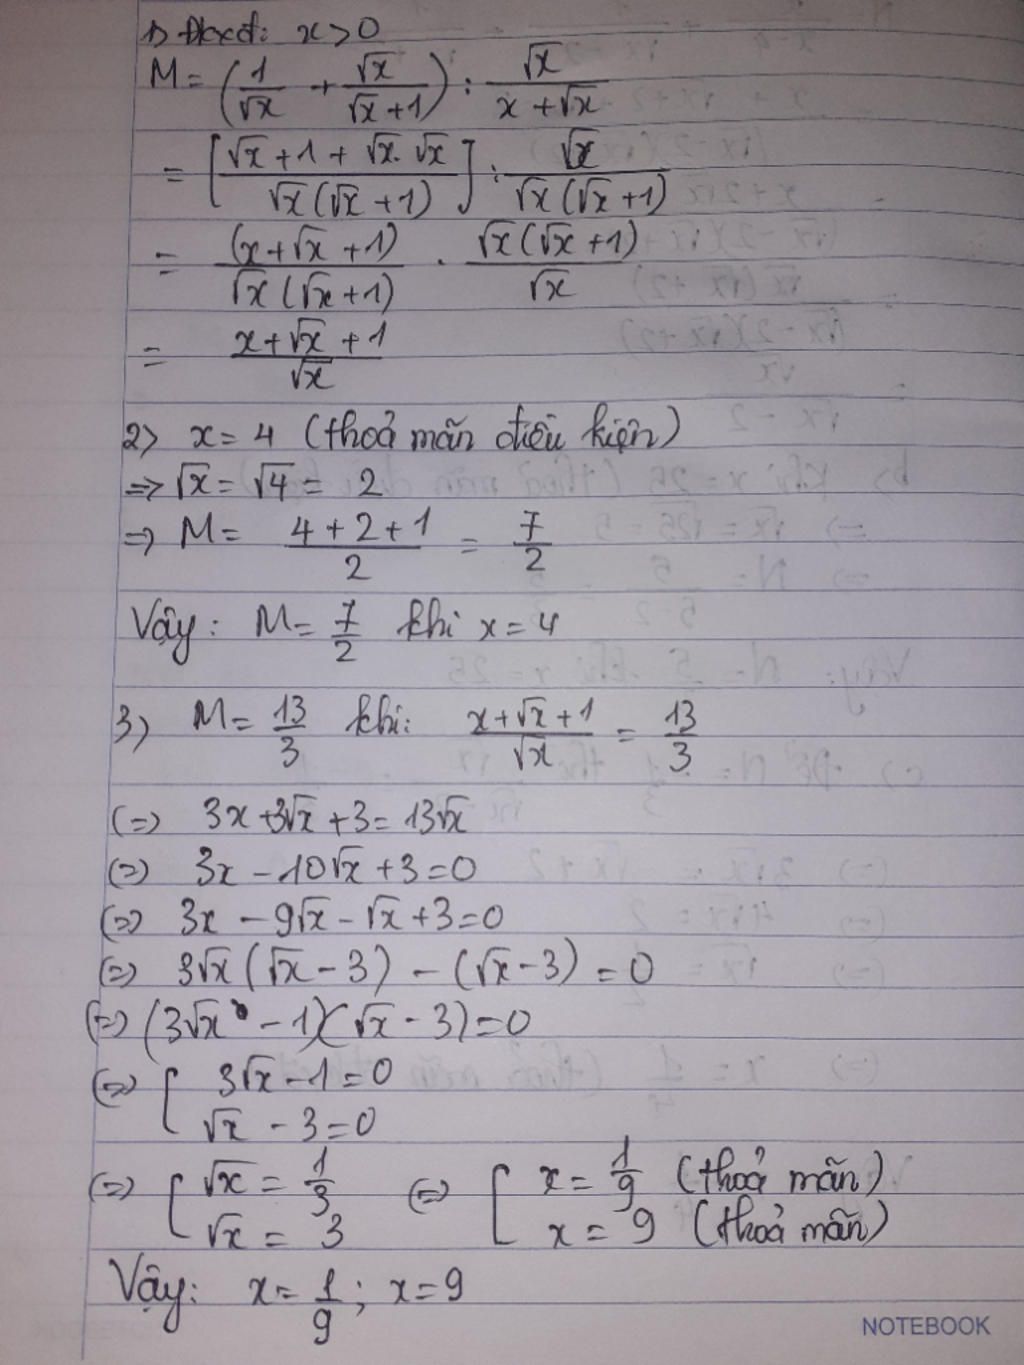 1) Đkxđ: x > 0
M = (1/√x + √x/(√x + 1)) : √x/(x + √x)
= [(√x + 1 + √x. √x)/(√x(√x + 1))] : √x/(√x(√x + 1))
= (x + √x + 1)/(√x(√x + 1)) . √x(√x + 1)/√x
= (x + √x + 1)/√x
2) x = 4 (thoả mãn điều kiện)
=> √x = √4 = 2
=> M = (4 + 2 + 1)/2 = 7/2
Vậy: M = 7/2 khi x = 4
3) M = 13/3 khi: (x + √x + 1)/√x = 13/3
(=) 3x + 3√x + 3 = 13√x
(=) 3x - 10√x + 3 = 0
(=) 3x - 9√x - √x + 3 = 0
(=) 3√x (√x - 3) - (√x - 3) = 0
(=) (3√x - 1)(√x - 3) = 0
(=) [ 3√x - 1 = 0
√x - 3 = 0
(=) [ √x = 1/3 (=) [ x = 1/9 (thoả mãn)
√x = 3 x = 9 (thoả mãn)
Vậy: x = 1/9 ; x = 9
NOTEBOOK